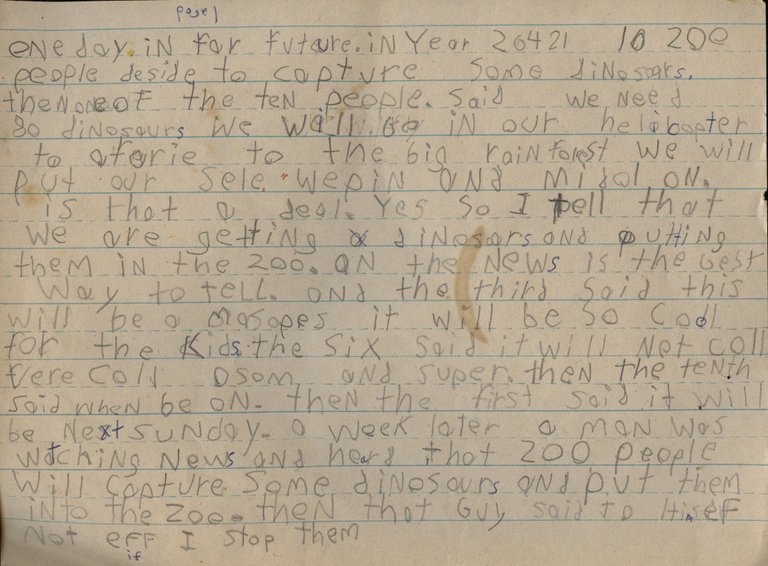 page 1
one day. iN far future. iN Year 26421 10 zoo
people deside to capture some dinosars.
then one of the ten people. said we Need
30 dinosaurs we will go in our helocopter
to aferie to the big rainforest we will
put our sele wepin and midal on.
is that a deal. Yes so I tell that
we are getting dinosars and putting
them in the zoo. on the News is the best
way to tell. and the third said this
will be a masopes it will be so cool
for the kids. the six said it will Not coll
Vere coll osom and super. then the tenth
said when be on. then the first said it will
be Next sunday. a week later a man was
watching News and herd that zoo people
will capture some dinosaurs and put them
into the zoo. then that Guy said to Hinself
Not eff I stop them
if